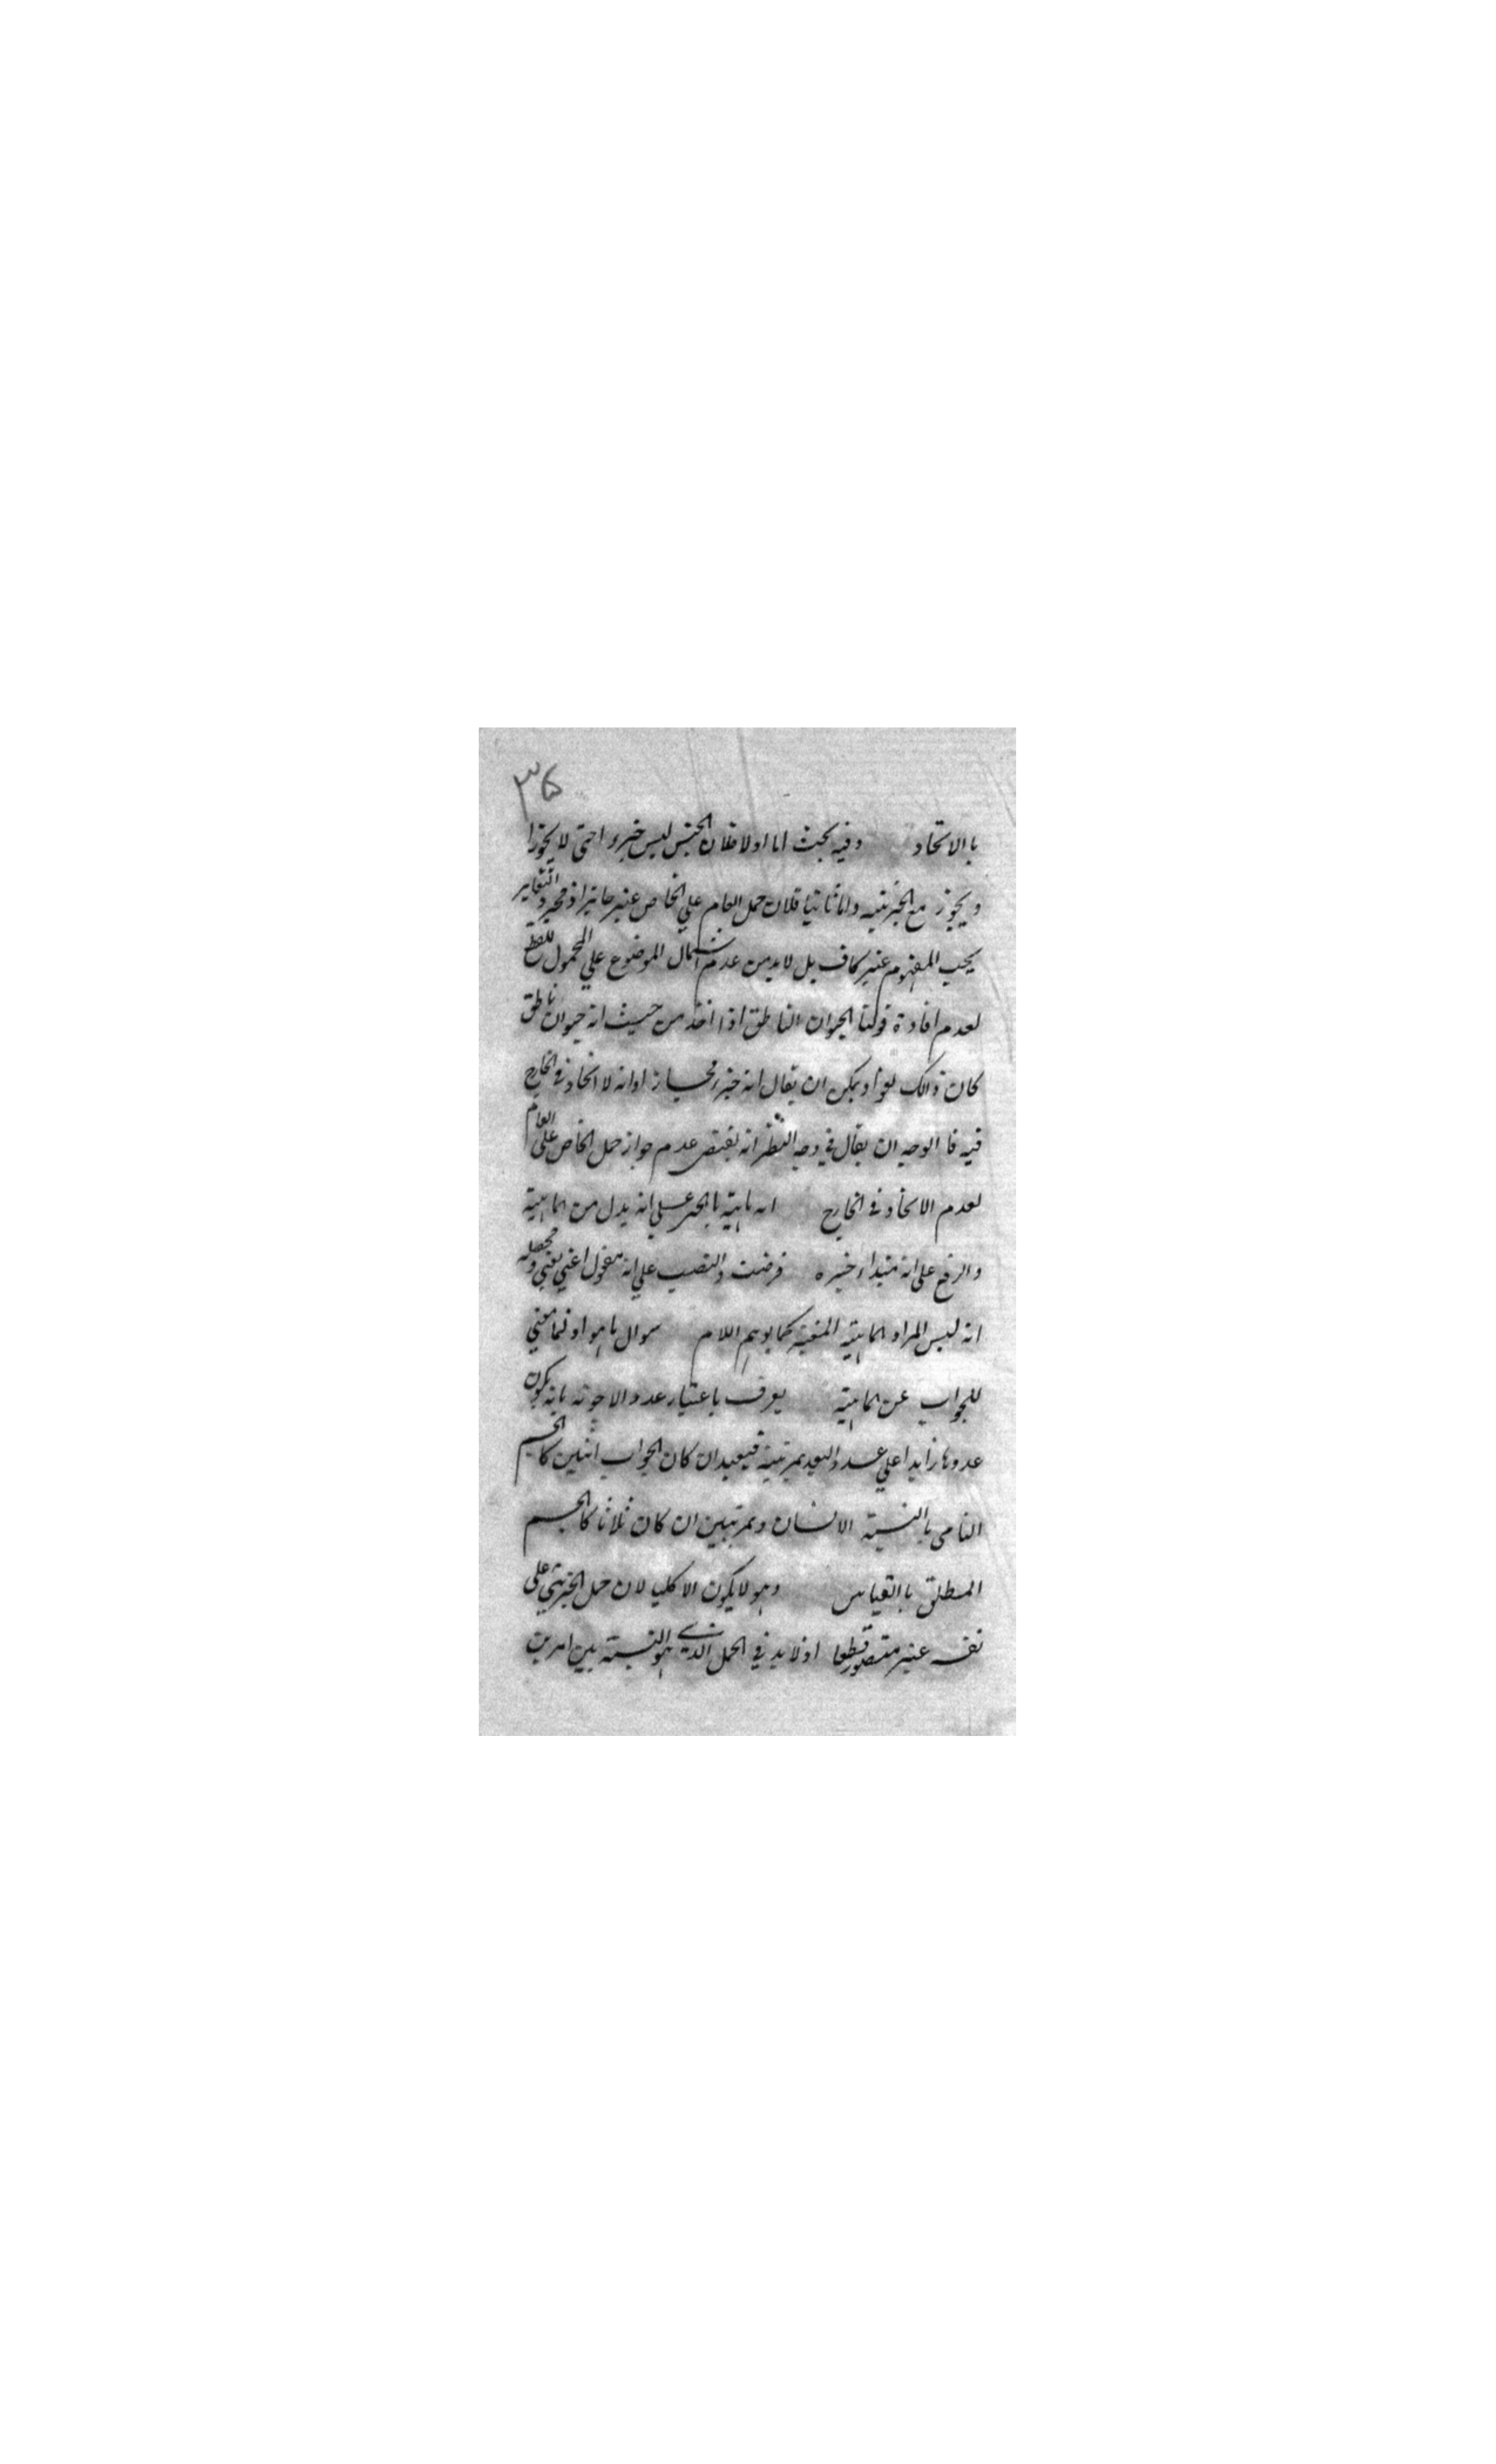 ٣٥
باالاتحاد وفيه بحث اما اولا فلان الجنس ليس جزء احتى لا يجوز
ويجوز مع الجزئيته واما ثانيا فلان حمل العام علي الخاص غير جايز اذ مجرد التغاير
بحسب المفهوم غير كاف بل لا بد من عدم اشتمال الموضوع علي المحمول للقطع
لعدم افادة قولنا الحيوان الناطق اذا اخذ من حيث انه حيوان ناطق
كان ذالك لغوا ويمكن ان يقال انه جزء مجازا وانه لا اتحاد في الخارج
فيه فا الوجه ان يقال في وجه النظر انه يقتضى عدم جواز حمل الخاص على العام
لعدم الاتحاد في الخارج اية ماهية باالجر علي انه بدل من الماهية
والرفع على انه مبتداء خبره فرضت والنصب علي انه مفعول اعني يعني ومحصله
انه ليس المراد الماهية المعينة كما يوهم اللام سوال ما هو او فما معنى
للجواب عن الماهية يعرف باعتبار عدد الاجوبة بانه يكون
عددها زايدا علي عدد البعد بمرتبة فبعيد ان كان الجواب اثنين كالجسم
النامى باالنسبة الانسان وبمرتبتين ان كان ثلاثا كالجسم
المطلق باالقياس وهو لا يكون الا كليا لان حمل الجزئي على
نفسه غير متصور قطعا اذ لا بد في الحمل الذي هو النسبة بين امرين